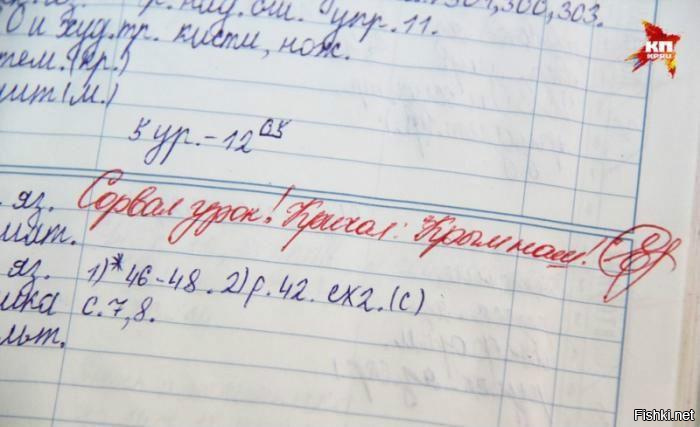 р. над. ош. упр. 11. 301, 300, 303.
О и худ. тр. кисти, нож.
тем. (пр.)
(м.)
5 ур. - 12 05
яз. Сорвал урок! Кричал: Крым наш!
яз. 1)* 46-48. 2) р. 42. ex2. (c)
с. 7, 8.
КП
KP.RU
Fishki.net